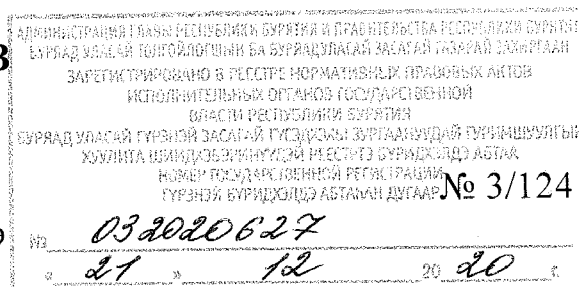 АДМИНИСТРАЦИЯ ГЛАВЫ РЕСПУБЛИКИ БУРЯТИЯ И ПРАВИТЕЛЬСТВА РЕСПУБЛИКИ БУРЯТИЯ
БУРЯАД УЛАСАЙ ТОЛГОЙЛОГШЫН БА БУРЯАД УЛАСАЙ ЗАСАГАЙ ГАЗАРАЙ ЗАХИРГААН
ЗАРЕГИСТРИРОВАНО В РЕЕСТРЕ НОРМАТИВНЫХ ПРАВОВЫХ АКТОВ
ИСПОЛНИТЕЛЬНЫХ ОРГАНОВ ГОСУДАРСТВЕННОЙ
ВЛАСТИ РЕСПУБЛИКИ БУРЯТИЯ
БУРЯАД УЛАСАЙ ГҮРЭНЭЙ ЗАСАГАЙ ГҮЙСЭДХЭХЫ ЗУРГААНУУДАЙ ГУРИМШУУЛГЫН
ХУУЛИТА ШИИДХЭБЭРИНҮҮДЭЙ РЕЕСТРТЭ БҮРИДХЭЛДЭ АБТАА
НОМЕР ГОСУДАРСТВЕННОЙ РЕГИСТРАЦИИ
ГҮРЭНЭЙ БҮРИДХЭЛДЭ АБТАҺАН ДУГААР № 3/124
№ 032020627
« 21 » 12 20 20 г.